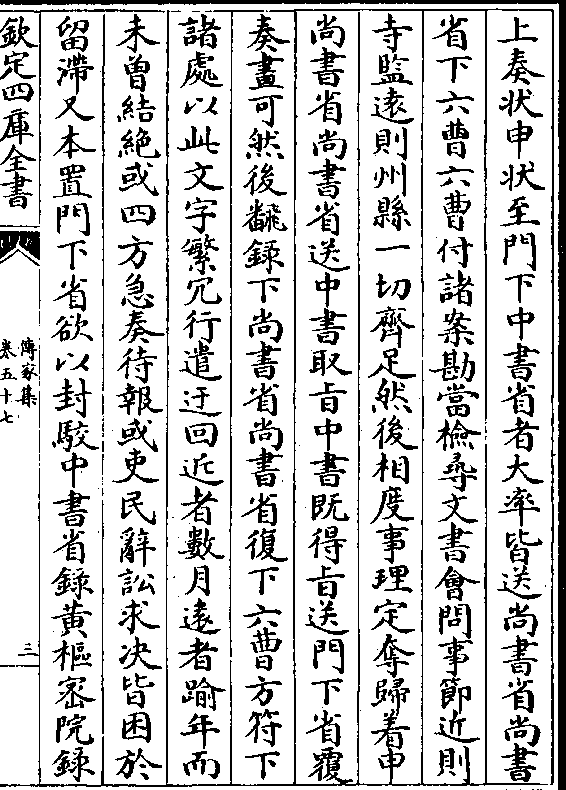 上奏狀申狀至門下中書省者大率皆送尚書省尚書
省下六曹六曹付諸案勘當檢尋文書會問事節近則
寺監遠則州縣一切齊足然後相度事理定奪歸着申
尚書省尚書省送中書取旨中書既得旨送門下省覆
奏畫可然後飜錄下尚書省尚書省復下六曹方符下
諸處以此文字繁冗行遣迂回近者數月遠者踰年而
未曾結絕或四方急奏待報或吏民辭訟求決皆困於
留滯又本置門下省欲以封駮中書省錄黃樞密院錄
欽定四庫全書
傳家集
卷五十七
三